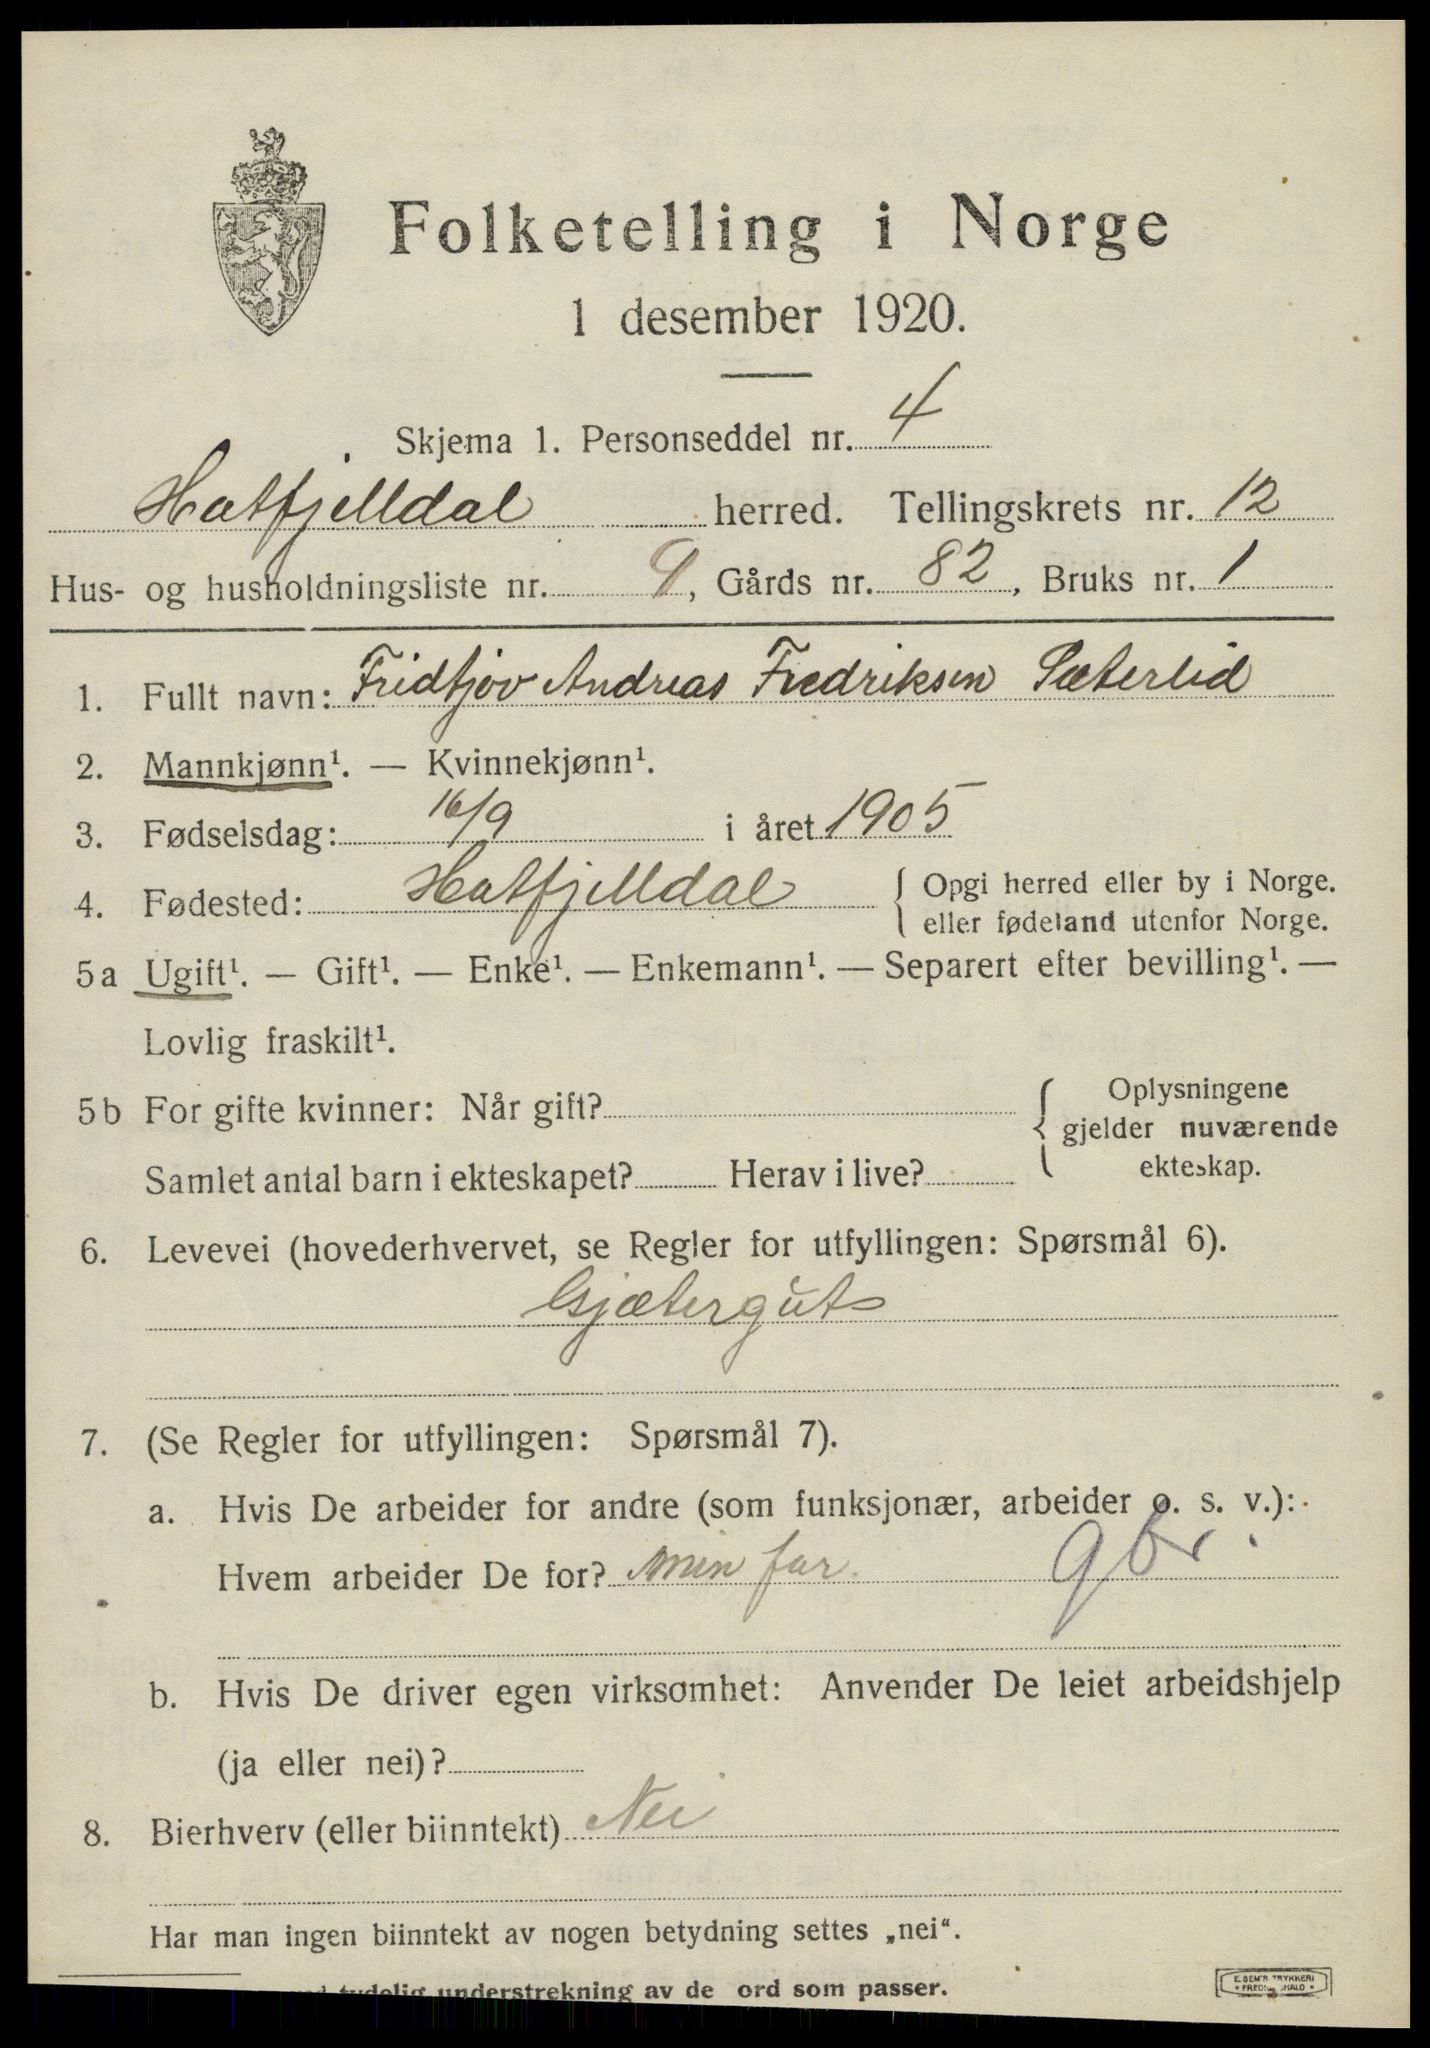 Folketelling i Norge
1 desember 1920.
Skjema 1. Personseddel nr. 4
Hatfjelldal herred. Tellingskrets nr. 12
Hus- og husholdningsliste nr. 9, Gårds nr. 82, Bruks nr. 1
1. Fullt navn: Fridtjov Andreas Fredriksen Sæterlid
2. Mannkjønn¹. — Kvinnekjønn¹.
3. Fødselsdag: 16/9 i året 1905
4. Fødested: Hatfjelldal { Opgi herred eller by i Norge.
eller fødeland utenfor Norge.
5a Ugift¹. — Gift¹. — Enke¹. — Enkemann¹. — Separert efter bevilling¹. —
Lovlig fraskilt¹.
5b For gifte kvinner: Når gift? { Oplysningene
gjelder nuværende
Samlet antal barn i ekteskapet? Herav i live? ekteskap.
6. Levevei (hovederhvervet, se Regler for utfyllingen: Spørsmål 6).
Gjætergut
7. (Se Regler for utfyllingen: Spørsmål 7).
a. Hvis De arbeider for andre (som funksjonær, arbeider o. s. v.):
Hvem arbeider De for? min far. gbr.
b. Hvis De driver egen virksomhet: Anvender De leiet arbeidshjelp
(ja eller nei)?
8. Bierhverv (eller biinntekt) Nei
Har man ingen biinntekt av nogen betydning settes „nei“.
tydelig understrekning av de ord som passer.
E. SEM'S TRYKKERI